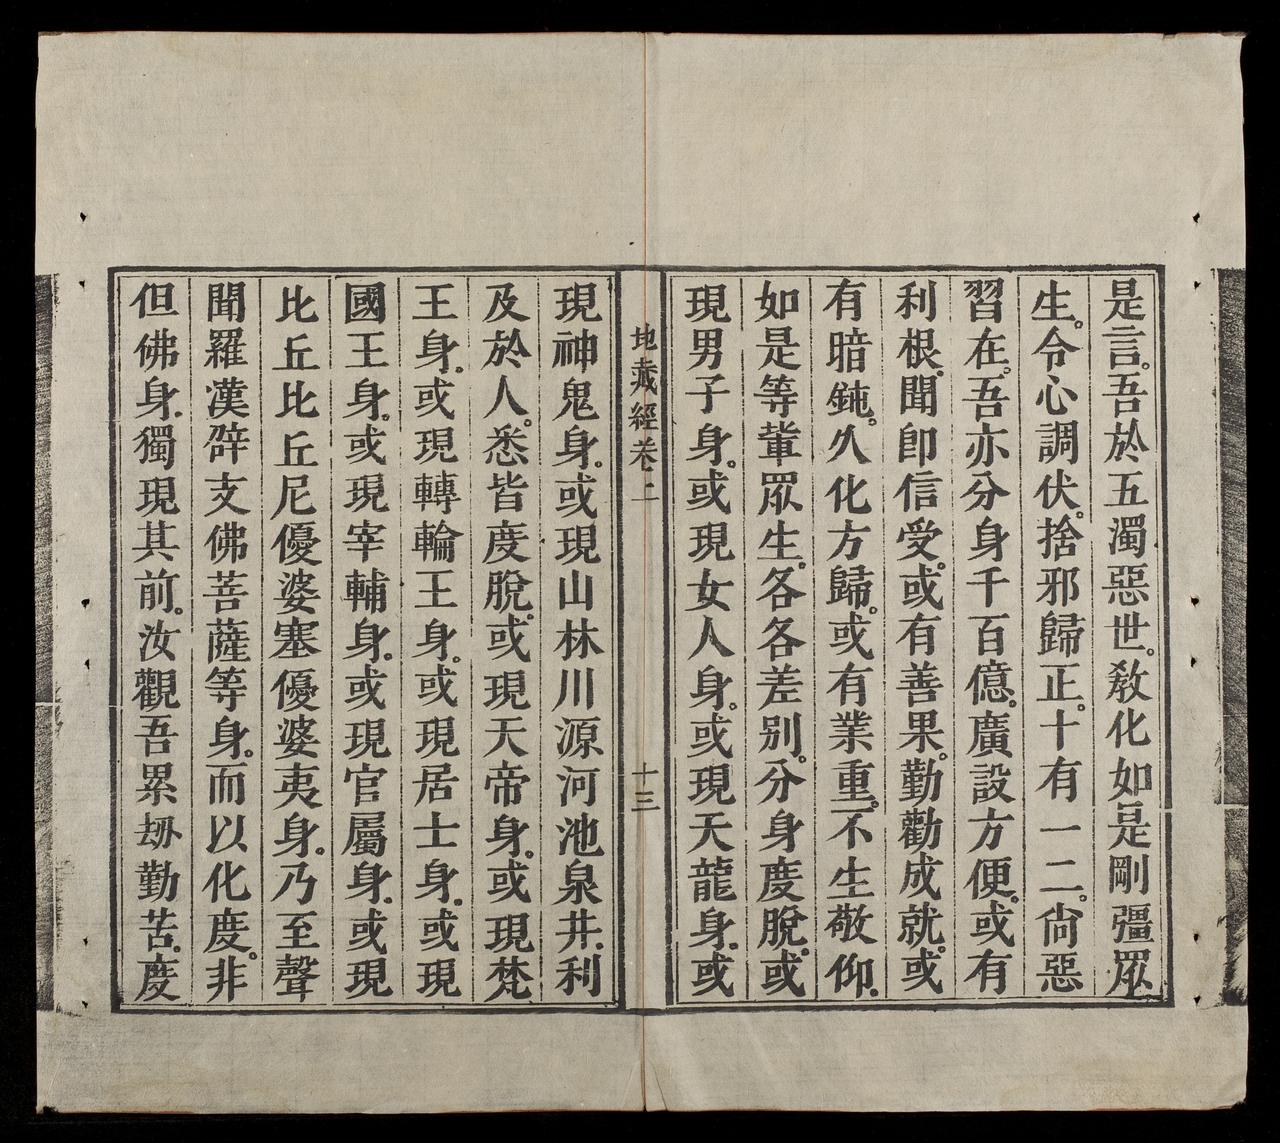 是言。吾於五濁惡世。教化如是剛彊眾
生。令心調伏。捨邪歸正。十有一二。尙惡
習在。吾亦分身千百億。廣設方便。或有
利根。聞卽信受。或有善果。勤勸成就。或
有暗鈍。久化方歸。或有業重。不生敬仰。
如是等輩眾生。各各差別。分身度脫。或
現男子身。或現女人身。或現天龍身。或
地藏經卷二
十三
現神鬼身。或現山林川源河池泉井。利
及於人。悉皆度脫。或現天帝身。或現梵
王身。或現轉輪王身。或現居士身。或現
國王身。或現宰輔身。或現官屬身。或現
比丘比丘尼優婆塞優婆夷身。乃至聲
聞羅漢辟支佛菩薩等身。而以化度。非
但佛身。獨現其前。汝觀吾累刼勤苦。度